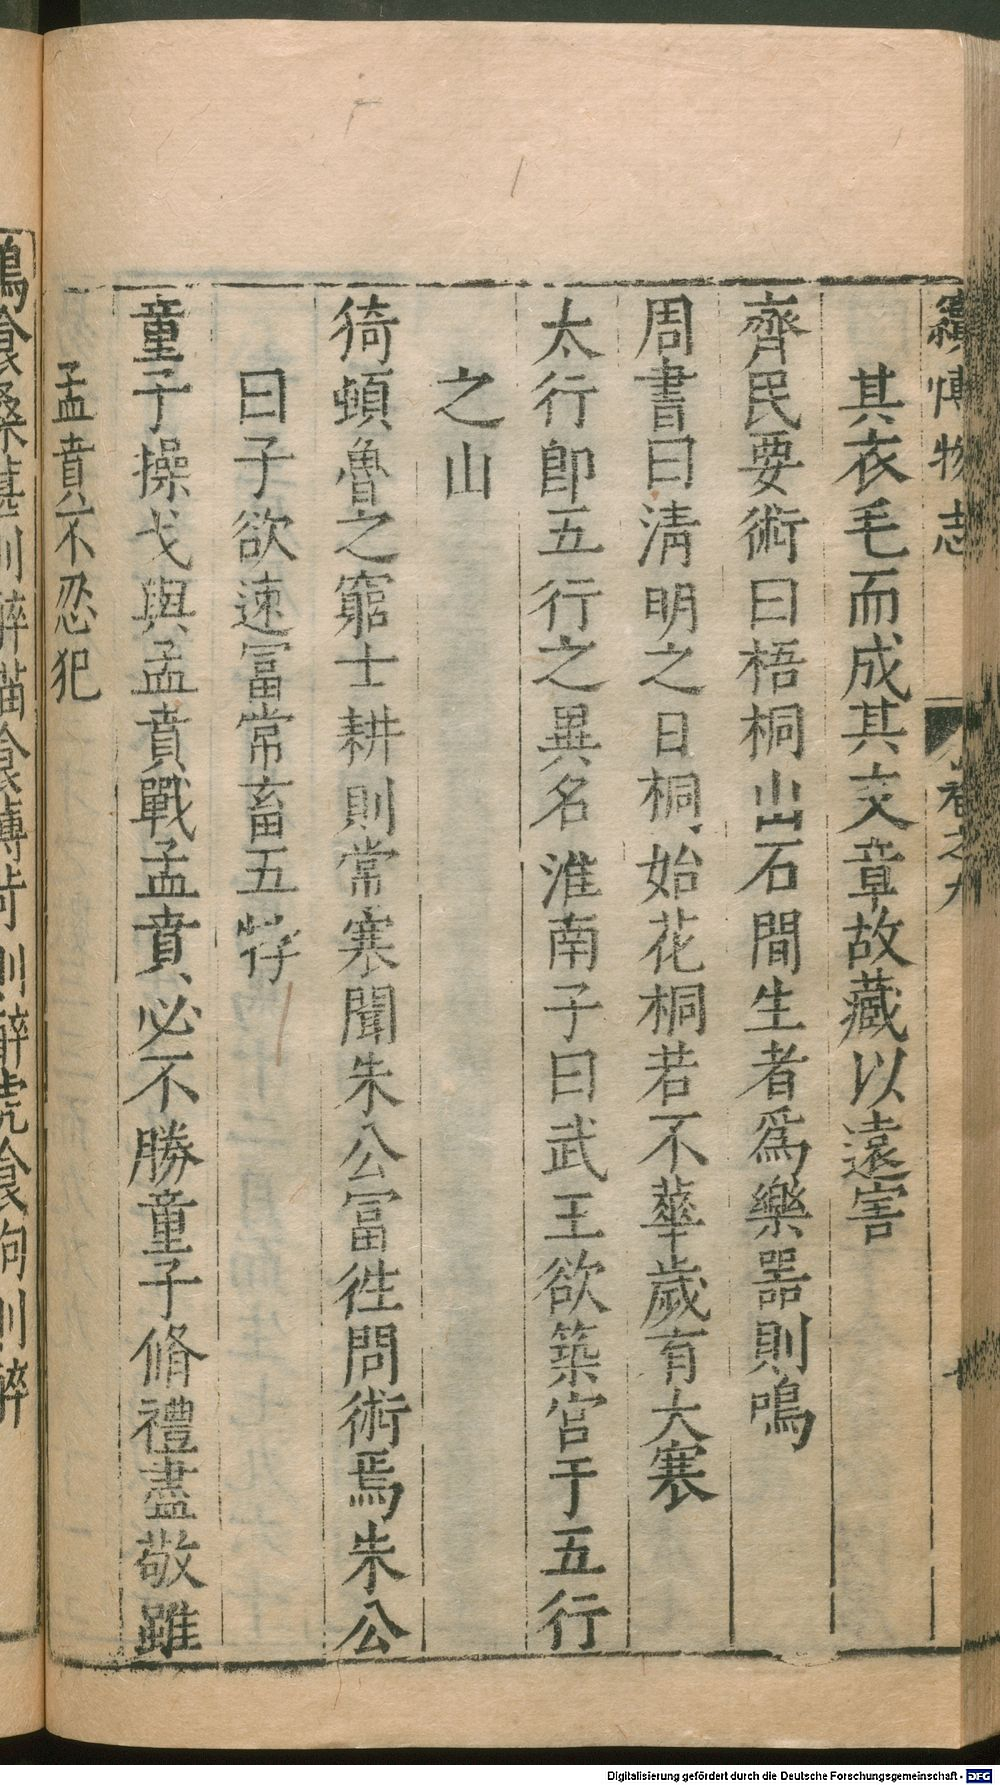 續博物志
卷之九
其衣毛而成其文章故藏以遠害
齊民要術曰梧桐山石間生者爲樂器則鳴
周書曰清明之日桐始花桐若不華歲有大寒
太行卽五行之異名淮南子曰武王欲築宮于五行
之山
猗頓魯之窮士耕則常寒聞朱公冨徃問術焉朱公
曰子欲速冨常畜五牸
童子操戈與孟賁戰孟賁必不勝童子脩禮盡敬雖
孟賁不忍犯
食桑椹則醉猫食薄荷則醉虎食狗則醉
Digitalisierung gefördert durch die Deutsche Forschungsgemeinschaft - DFG